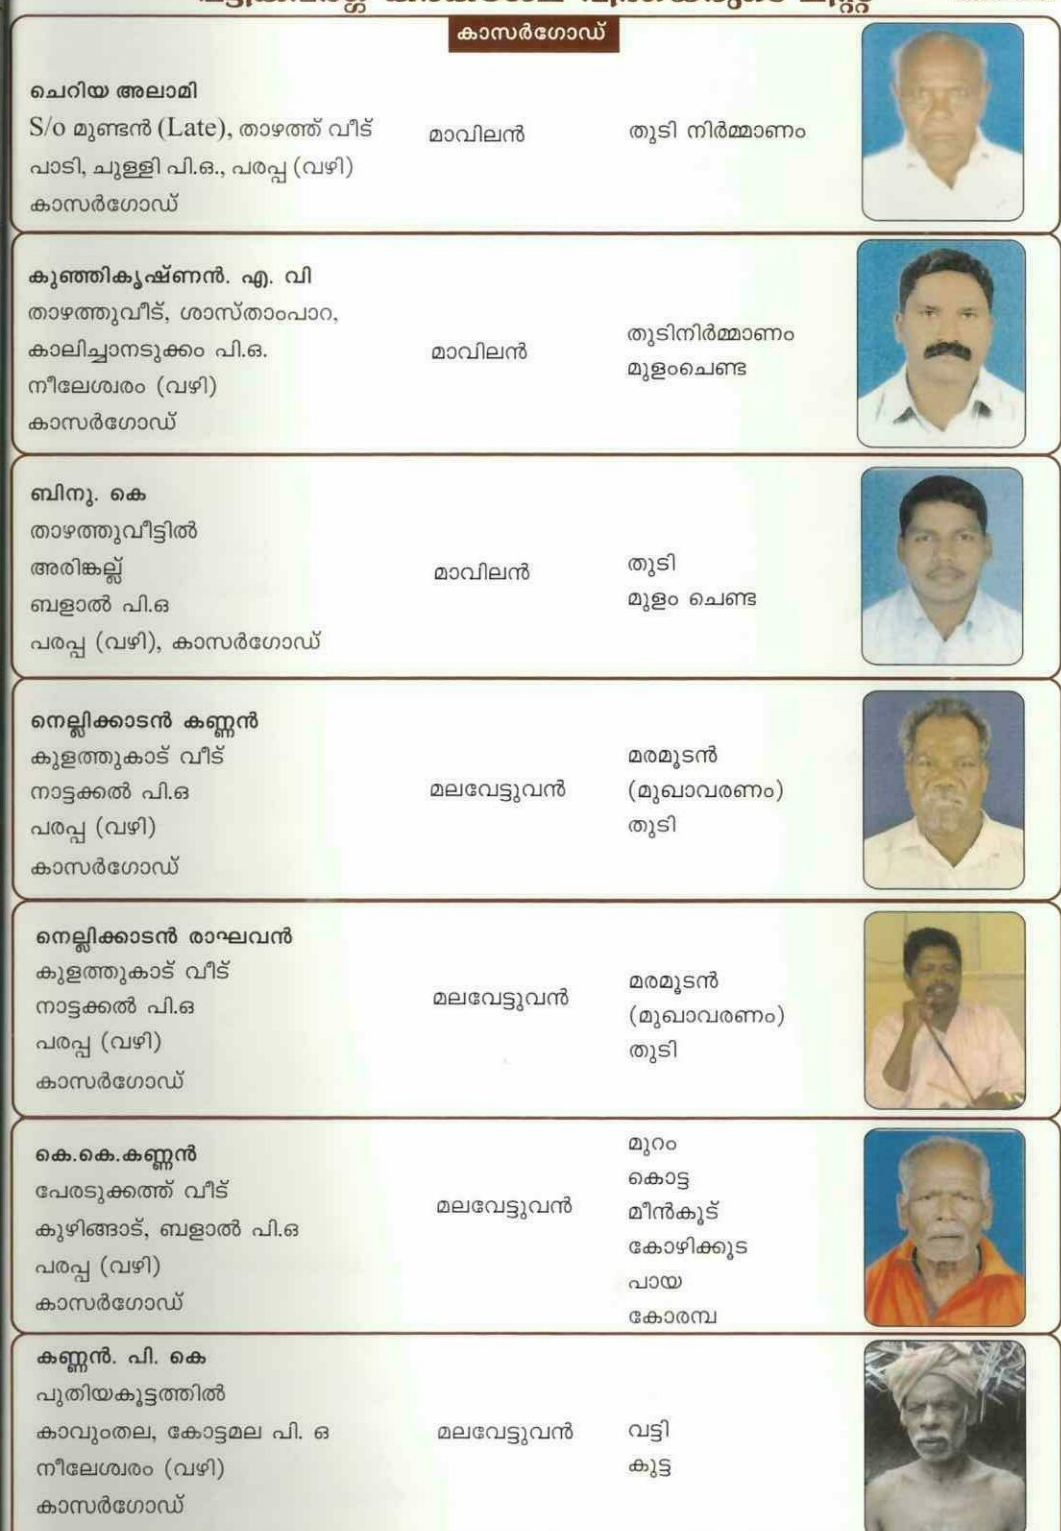 കാസർഗോഡ്
ചെറിയ അലാമി
S/o മുണ്ടൻ (Late), താഴത്ത് വീട്
പാടി, ചുള്ളി പി.ഒ., പരപ്പ (വഴി)
കാസർഗോഡ്
മാവിലൻ
തുടി നിർമ്മാണം
കുഞ്ഞികൃഷ്ണൻ. എ. വി
താഴത്തുവീട്, ശാസ്താംപാറ,
കാലിച്ചാനടുക്കം പി.ഒ.
നീലേശ്വരം (വഴി)
കാസർഗോഡ്
മാവിലൻ
തുടിനിർമ്മാണം
മുളംചെണ്ട
ബിനു. കെ
താഴത്തുവീട്ടിൽ
അരിങ്കല്ല്
ബളാൽ പി.ഒ
പരപ്പ (വഴി), കാസർഗോഡ്
മാവിലൻ
തുടി
മുളം ചെണ്ട
നെല്ലിക്കാടൻ കണ്ണൻ
കുളത്തുകാട് വീട്
നാട്ടക്കൽ പി.ഒ
പരപ്പ (വഴി)
കാസർഗോഡ്
മലവേട്ടുവൻ
മരമൂടൻ
(മുഖാവരണം)
തുടി
നെല്ലിക്കാടൻ രാഘവൻ
കുളത്തുകാട് വീട്
നാട്ടക്കൽ പി.ഒ
പരപ്പ (വഴി)
കാസർഗോഡ്
മലവേട്ടുവൻ
മരമൂടൻ
(മുഖാവരണം)
തുടി
കെ.കെ.കണ്ണൻ
പേരടുക്കത്ത് വീട്
കുഴിങ്ങാട്, ബളാൽ പി.ഒ
പരപ്പ (വഴി)
കാസർഗോഡ്
മലവേട്ടുവൻ
മുറം
കൊട്ട
മീൻകൂട്
കോഴിക്കൂട
പായ
കോരമ്പ
കണ്ണൻ. പി. കെ
പുതിയകൂട്ടത്തിൽ
കാവുംതല, കോട്ടമല പി. ഒ
നീലേശ്വരം (വഴി)
കാസർഗോഡ്
മലവേട്ടുവൻ
വട്ടി
കുട്ട